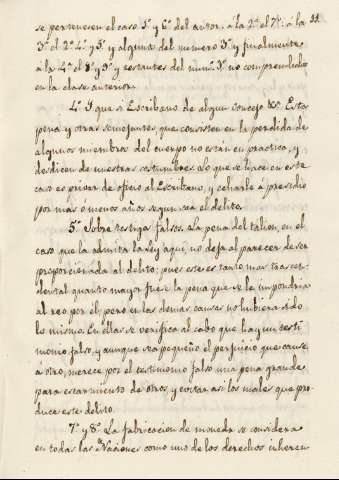 se pertenecen el caso 5º y 6º del autor: á la 2ª el 7º: á la 11.
3ª el 2º 4º y 5º y alguna del numero 3º y finalmente
á la 4ª el 8º y 9º y restantes del num. 3º no comprendidos
en la clase anterior.
4º Y que si Escribano de algun concejo &ª. Esta
pena y otras semejantes que consisten en la perdida de
algunos miembros del cuerpo no estan en practica, y
desdicen de nuestras costumbres. Lo que se hace en este
caso es privar de oficio al Escribano, y echarle á presidio
por mas ó menos años segun sea el delito.
5º Sobre testigos falsos. La pena del talion, en el
caso que la admita la ley aqui, no deja al parecer de ser
proporcionada al delito; pues este es tanto mas trascen-
dental quanto mayor fuese la pena que se le impondria
al reo por él, pero en las demas causas no hubiera sido
lo mismo. En ellas se verifica al cabo que hay un testi
monio falso, y aunque sea pequeño el perjuicio que cause
á otro, merece por el testimonio falso una pena grande
para escarmiento de otros, y cortar asi los males que pro
duce este delito.
7º y 8º La fabricacion de moneda se considera
en todas las Naciones como uno de los derechos inheren